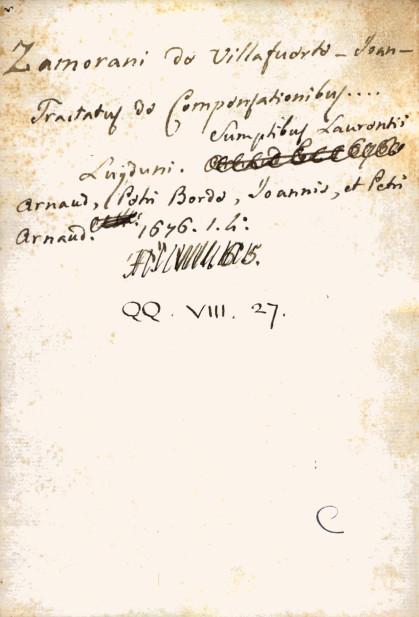 Zamorani de Villafuerte - Joan-
Tractatus de Compensationibus....
Sumptibus Laurentii
Lugduni.
Arnaud, Petri Borde, Joannis, et Petri
Arnaud. 1676. 1. 4º.
QQ. VIII. 27.
C